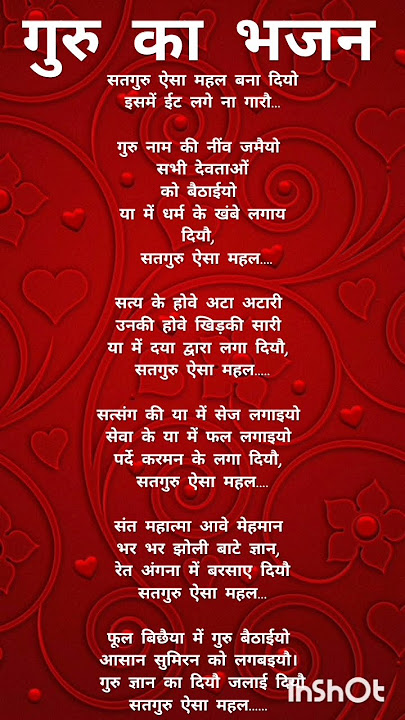 गुरु का भजन
सतगुरु ऐसा महल बना दियो
इसमें ईट लगे ना गारौ...
गुरु नाम की नींव जमैयो
सभी देवताओं
को बैठाईयो
या में धर्म के खंबे लगाय
दियौ,
सतगुरु ऐसा महल....
सत्य के होवे अटा अटारी
उनकी होवे खिड़की सारी
या में दया द्वारा लगा दियौ,
सतगुरु ऐसा महल.....
सत्संग की या में सेज लगाइयो
सेवा के या में फल लगाइयो
पर्दे करमन के लगा दियौ,
सतगुरु ऐसा महल....
संत महात्मा आवे मेहमान
भर भर झोली बाटे ज्ञान,
रेत अंगना में बरसाए दियौ
सतगुरु ऐसा महल...
फूल बिछैया में गुरु बैठाईयो
आसान सुमिरन को लगबइयौ।
गुरु ज्ञान का दियौ जलाई दियौ
सतगुरु ऐसा महल......
InShOt